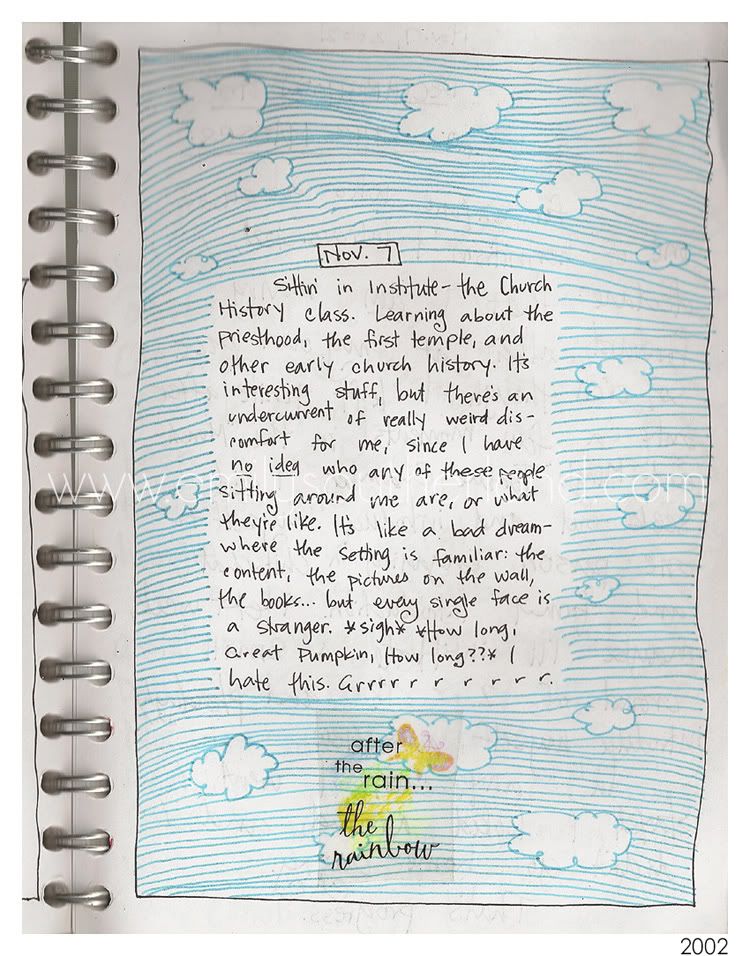 Nov. 7
Sittin' in Institute - the Church
History class. Learning about the
priesthood, the first temple, and
other early church history. It's
interesting stuff, but there's an
undercurrent of really weird dis-
comfort for me, since I have
no idea who any of these people
sitting around me are, or what
they're like. It's like a bad dream-
where the setting is familiar: the
content, the pictures on the wall,
the books... but every single face is
a stranger. *sigh* *How long,
Great Pumpkin, How long??* I
hate this. Grrrr r r r r r r.
after
the rain...
the
rainbow
2002